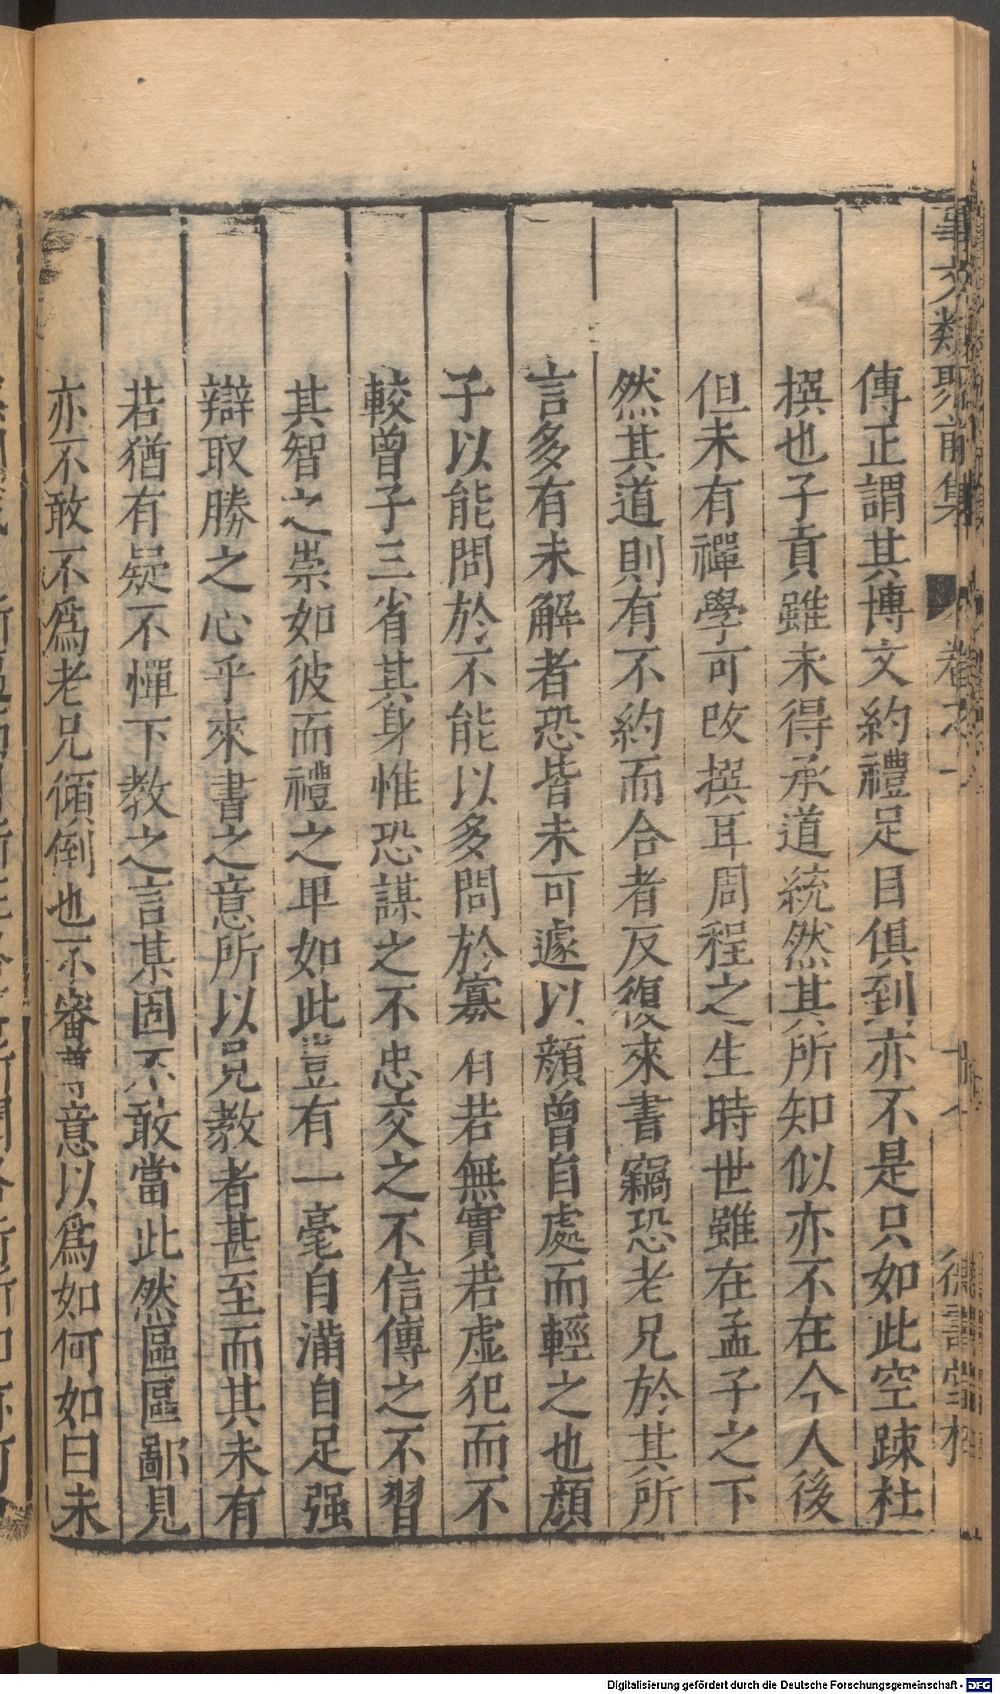 事文類聚前集 卷之 德壽堂梓
傳正謂其博文約禮足目俱到亦不是只如此空踈杜
撰也子貢雖未得承道統然其所知似亦不在今人後
但未有禪學可改撰耳周程之生時世雖在孟子之下
然其道則有不約而合者反復來書竊恐老兄於其所
言多有未解者恐皆未可遽以顔曾自處而輕之也顔
子以能問於不能以多問於寡有若無實若虛犯而不
較曾子三省其身惟恐謀之不忠交之不信傳之不習
其智之崇如彼而禮之卑如此豈有一毫自滿自足强
辯取勝之心乎來書之意所以見教者甚至而其未有
若猶有疑不憚下教之言某固不敢當此然區區鄙見
亦不敢不爲老兄傾倒也不審尊意以爲如何如曰未
Digitalisierung gefördert durch die Deutsche Forschungsgemeinschaft - DFG